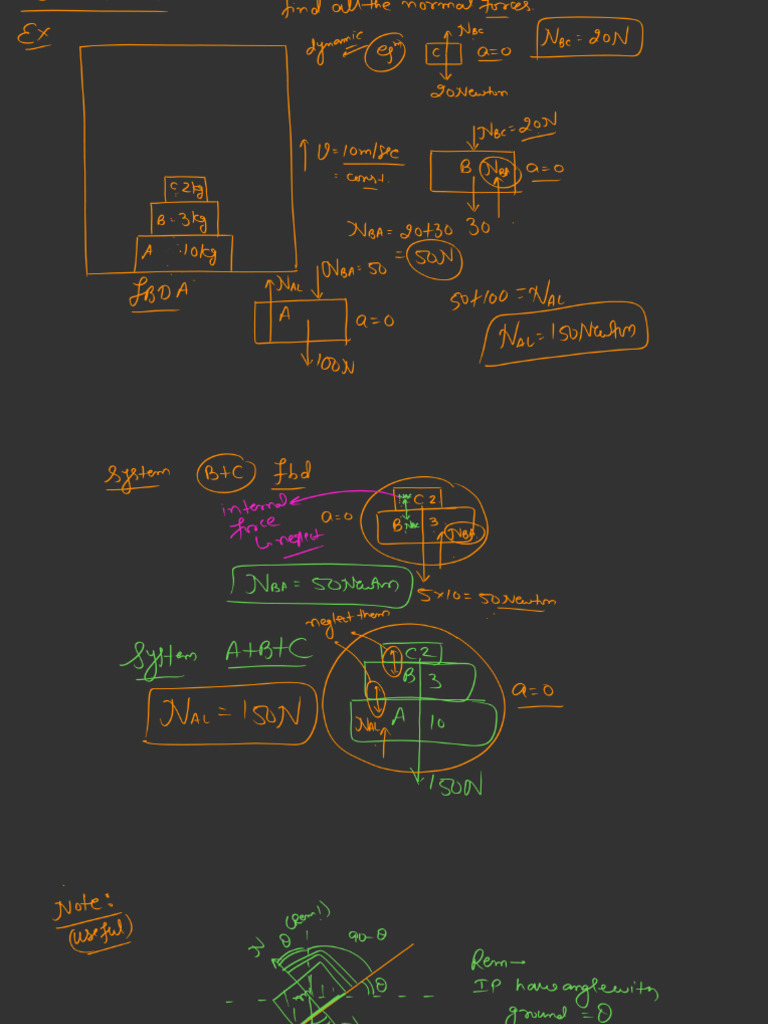 find all the normal forces.
Ex
dynamic eqm
N_BC
C
a=0
20Newton
N_BC = 20N
V = 10m/sec
= const.
C 2kg
B = 3kg
A 10kg
FBD A
N_BC = 20N
B N_BA a=0
30
N_BA = 20+30
= 50N
N_AL
N_BA = 50
A
a=0
100N
50+100 = N_AL
N_AL = 150Newton
System B+C fbd
internal
force
↳ neglect
a=0
C 2
B N_BC 3
N_BA
N_BA = 50Newton
5×10 = 50Newton
neglect them
System A+B+C
C 2
B 3
A 10
N_AL
a=0
N_AL = 150N
150N
Note:
(useful)
(Rem!)
N
θ
90-θ
θ
Rem→
IP have angle with
ground = θ